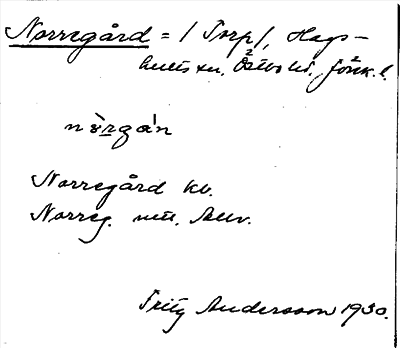 Norregård = / Torp /, Hags-
hults sn, Östbo hd, Jönk. l.
nòrgán
Norregård kb.
Norreg. mtl,
Fritz Andersson 1930.